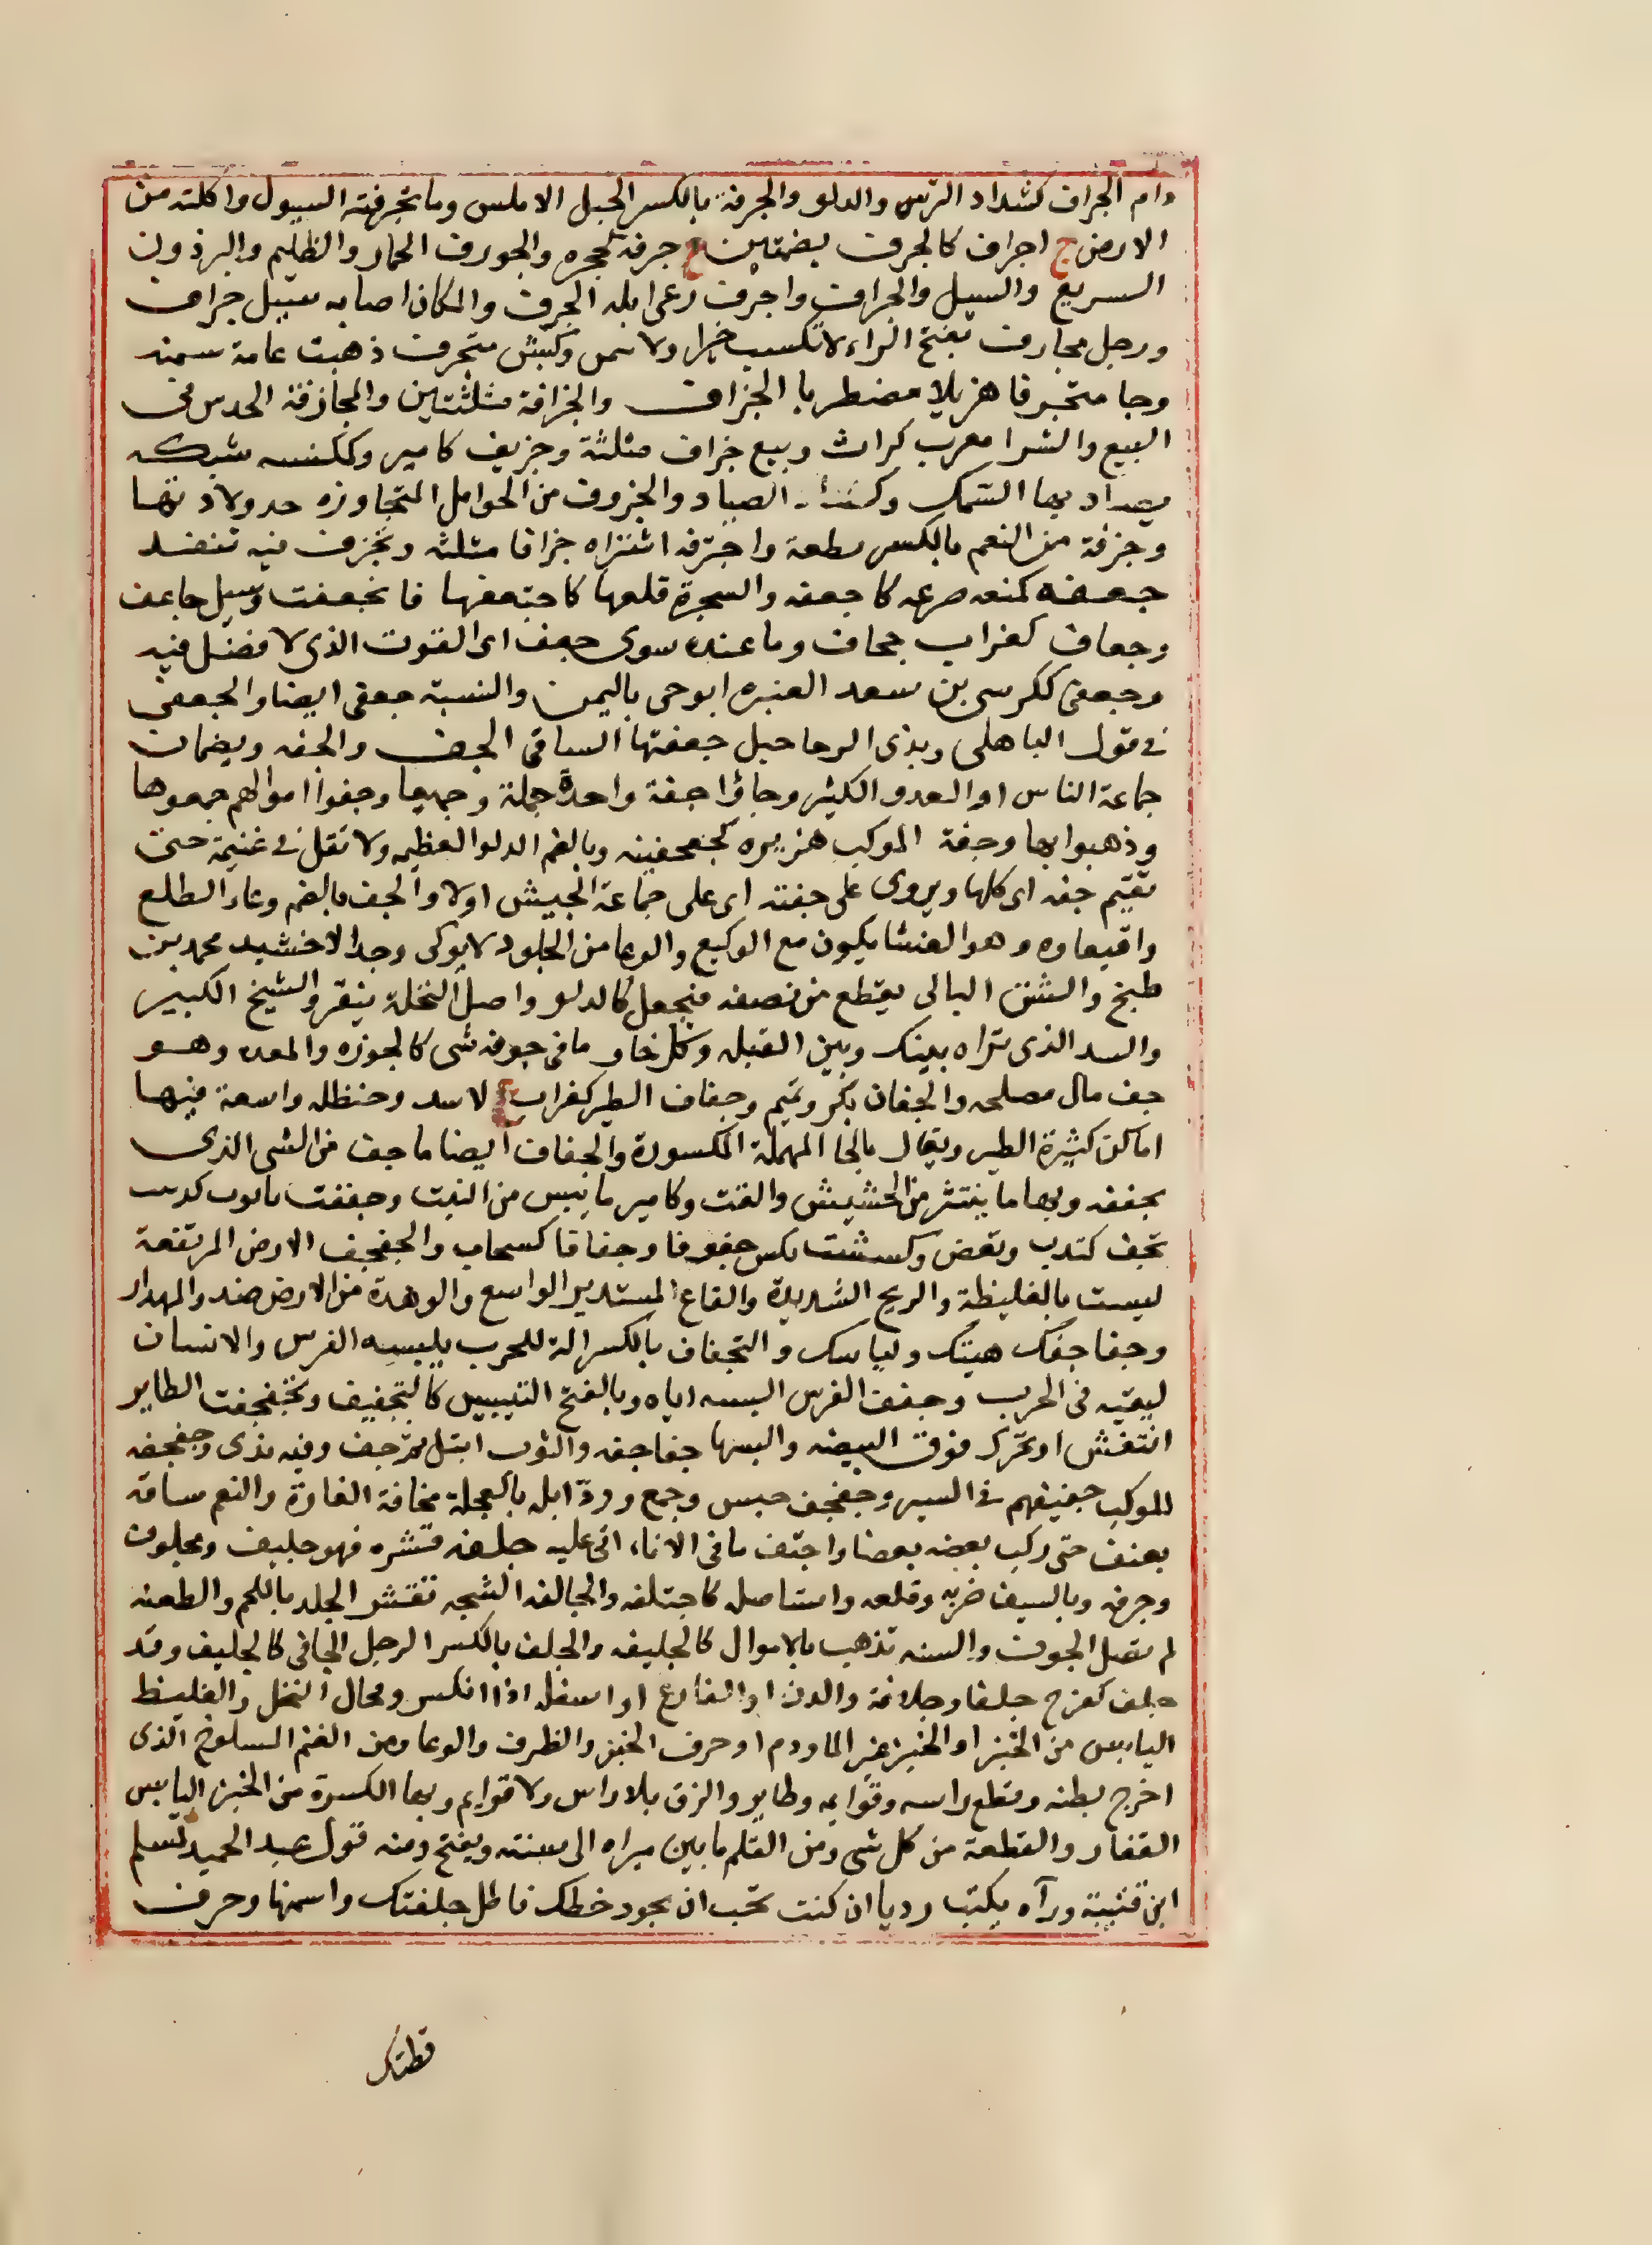 وام الجراف كشداد الترس والدلو والجرفة بالكسر الحبل الاملس وما تجرفته السيول واكلته من
الارض ج اجراف كالجرف بضمتين ج جرفة كجحره والجورف الحمار والظليم والبرذون
السريع والسيل والجراف واجرف رعى ابله الجرف والمكان اصابه سيل جراف
ورجل مجارف بفتح الراء لا يكسب خيرا ولا وكبش متجرف ذهبت عامة سمنه
وجا متجرفا هزيلا مضطربا الجزاف والجزافة مثلثتين والمجازفة الحدس في
البيع والشرا معرب كزاف وبيع جزاف مثلثة وجزيف كامير وكمكنسه شبكه
يصاد بها السمك الصياد والجزوف من الحوامل المتجاوزه حد ولادتها
وجزفة من النعم بالكسر قطعة واجتزفه اشتراه جزافا مثلثه وتجزف فيه تنفذ
جعفه كمنعه صرعه كاجعفه والشجرة قلعها كاجتعفها فانجعفت وسيل جاعف
وجعاف كغراب جحاف وما عنده سوى جعف اى القوت الذى لا فضل فيه
وجعفى ككرسى بن سعد العشيره ابو حى باليمن والنسبة جعفى ايضا والجعفى
فى قول الباهلى وبذى الرحا حبل جعفتها الساقى الجف والجفه ويضمان
جماعة الناس او العدو الكثير وجاؤا جفة واحدة جملة وجميعا وجفوا اموالهم جمعوها
وذهبوا بها وجفة الموكب هزيره كجفجفته وبالضم الدلو العظيم ولا نقل فى غنيمة حتى
تقسم جفه اى كلها ويروى على جفته اى على جماعة الجيش اولا والجف بالضم وعاء الطلع
واقيعاوه وهو الغشا يكون مع الوكيع والوعا من الجلود لا يوكى وجد الاخشيد محمد بن
طبخ والشن البالى يقطع من نصفه فيجعل كالدلو واصل النخلة ينقر والشيخ الكبير
والسد الذى تراه بينك وبين القبله وكل خاو ما فى جوفه شى كالجوزه والمعده وهو
جف مال مصلحه والجفان بكر وتميم وجفاف الطير كغراب ع لاسد وحنظله واسعة فيها
اماكن كثيرة الطير ويقال بالحا المهملة المكسورة والجفاف ايضا ما جف من الشى الذى
يجففه وبها ما ينتثر من الحشيش والقت وكامير ما يبس من النبت وجففت يا ثوب كدببت
تجف كتدب وتعض وكبششت تبش جفوفا وجفافا كسحاب والجفجف الارض المرتفعة
ليست بالغليظة والريح الشديدة والقاع المستدير الواسع والوهدة من الارض ضد والمهدار
وجفاجفك هيتك ولباسك والتجفاف بالكسر الة للحرب يلبسه الفرس والانسان
ليقيه فى الحرب وجفف الفرس البسه اياه وبالفتح التيبيس كالتجفيف وتجفجفت الطاير
انتفش او تحرك فوق البيضه والبسها جفاجفه والثوب ابتل ثم جف وفيه ندى وجفجفه
الموكب حفيفهم فى السير وجفجف حبس وجمع ورد ابله بالعجلة مخافة الغارة والنعم ساقه
بعنف حتى ركب بعضه بعضا واجتف ما فى الاناء اتى عليه جلفه قشره فهو جليف ومجلوف
وجرفه وبالسيف ضربه وقلعه واستاصله كاجتلفه والجالفه الشجه تقشر الجلد باللحم والطعنه
لم تصل الجوف والسنه تذهب بالاموال كالجليفه والجلف بالكسر الرجل الجافى كالجليف وقد
جلف كفرح جلفا وجلافة والدن او الفارغ او اسفله اذا انكسر وفحال النخل والغليظ
اليابس من الخبز او الخبز غير المادوم او حرف الخبز والظرف والوعا ومن الغنم المسلوخ الذى
اخرج بطنه وقطع راسه وقوايمه وطاير والزق بلا راس ولا قوايم وبها الكسرة من الخبز اليابس
القفار والقطعة من كل شى ومن القلم ما بين مبراه الى سنته ويفتح ومنه قول عبد الحميد لسلم
ابن قتيبة ورآه يكتب رديا ان كنت تحب ان يجود خطك فاطل جلفتك واسمنها وحرف
قطتك